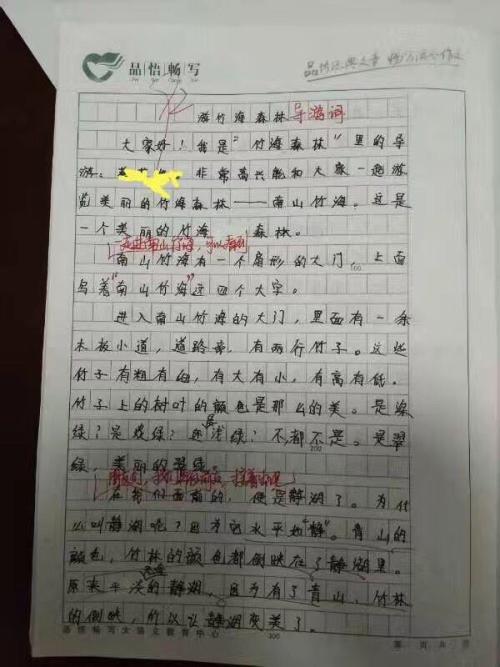 品悟畅写
品悟经典文章 畅写
游竹海森林导游词
大家好！我是"竹海森林"里的导
游：非常高兴能和大家一起游
览美丽的竹海森林——南山竹海。这是
一个美丽的竹海 森林。
走进南山竹海，可以看到
南山竹海有一个扇形的大门，上面
写着"南山竹海"这四个大字。
100
进入南山竹海的大门，里面有一条
木板小道，道路旁，有两行竹子。这些
竹子有粗有 ，有大有小，有高有低。
竹子上的树叶的颜色是那么的美。是深
绿？是嫩绿？还是浅绿？不，都不是。是翠
200
绿，美丽的翠绿
我们 接着
在我们面前的，便是静湖了。为什
么叫静湖呢？因为它水平如"静"。青山的
颜色，竹林的颜色都倒映在了静湖里。
原来平淡的静湖，因为有了青山，竹林
的倒映，所以让静湖变美了。
品悟畅写大语文教育中心
300
第 页 共 页